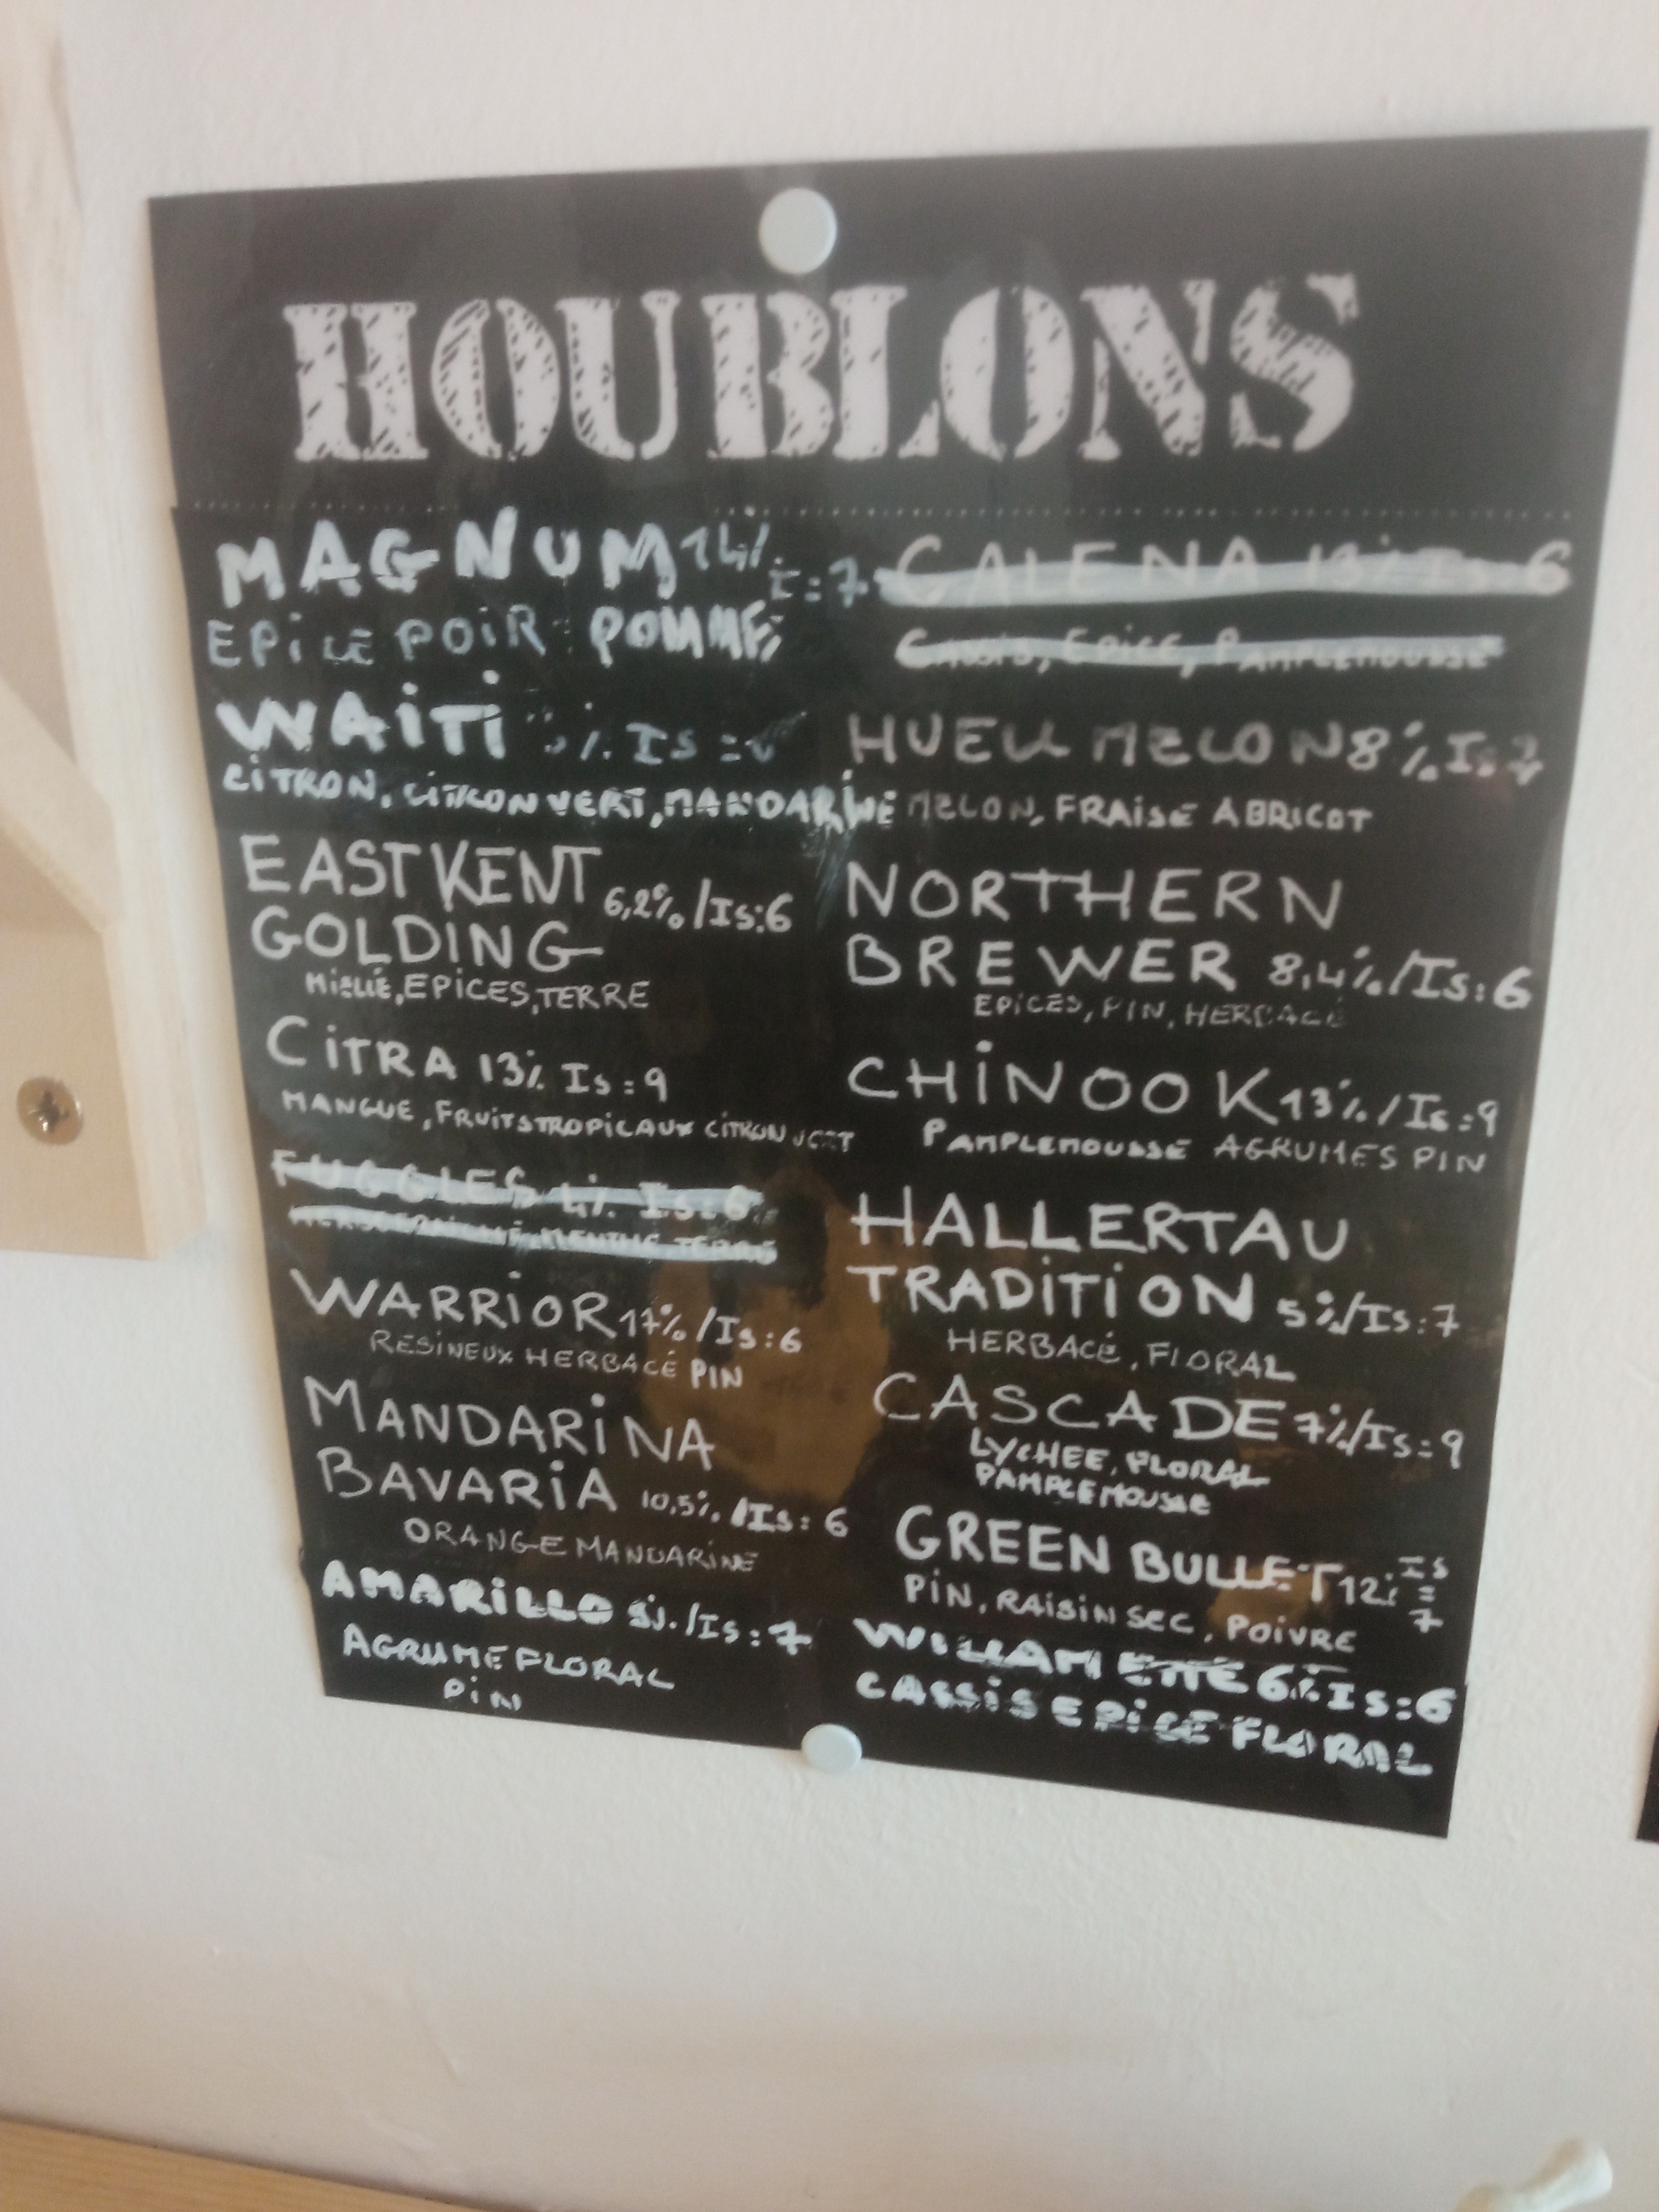 HOUBLONS
MAGNUM 14%
I=7
EPICE POIR POMME
WAITI % IS=
CITRON, CITRON VERT, MANDARINE
EAST KENT
GOLDING 6,2% /IS:6
MIELLÉ, EPICES, TERRE
CITRA 13% IS=9
MANGUE, FRUITS TROPICAUX CITRON VERT
FUGGLES 4% IS:6
MENTHE, TERRE
WARRIOR 17% /IS:6
RESINEUX HERBACÉ PIN
MANDARINA
BAVARIA 10,5% /IS:6
ORANGE MANDARINE
AMARILLO /IS:7
AGRUME FLORAL
PIN
GALENA 13% IS=6
CASSIS, EPICE, PAMPLEMOUSSE
HUELL MELON 8% IS 7
MELON, FRAISE ABRICOT
NORTHERN
BREWER 8,4% /IS:6
EPICES, PIN, HERBACÉ
CHINOOK 13% /IS=9
PAMPLEMOUSSE AGRUMES PIN
HALLERTAU
TRADITION 5% /IS:7
HERBACÉ, FLORAL
CASCADE 7% /IS=9
LYCHEE, FLORAL
PAMPLEMOUSSE
GREEN BULLET 12% IS
=
7
PIN, RAISIN SEC, POIVRE
WILLAMETTE 6% IS:6
CASSIS EPICE FLORAL